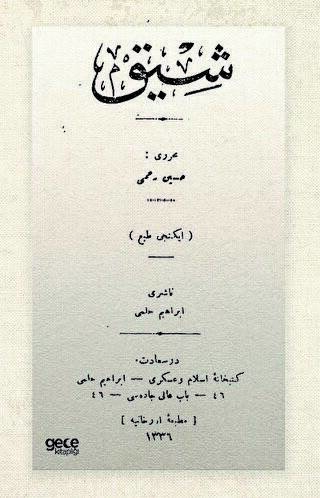 شيق
محررى :
حسين رحمى
( ايكنجى طبع )
ناشرى
ابراهيم حلمى
درسعادت
كتبخانۀ اسلام وعسكرى — ابراهيم حلمى
٤٦ — باب عالى جاده سى — ٤٦
[ مطبعۀ اورخانيه ]
١٣٣٦
gece
kitaplığı